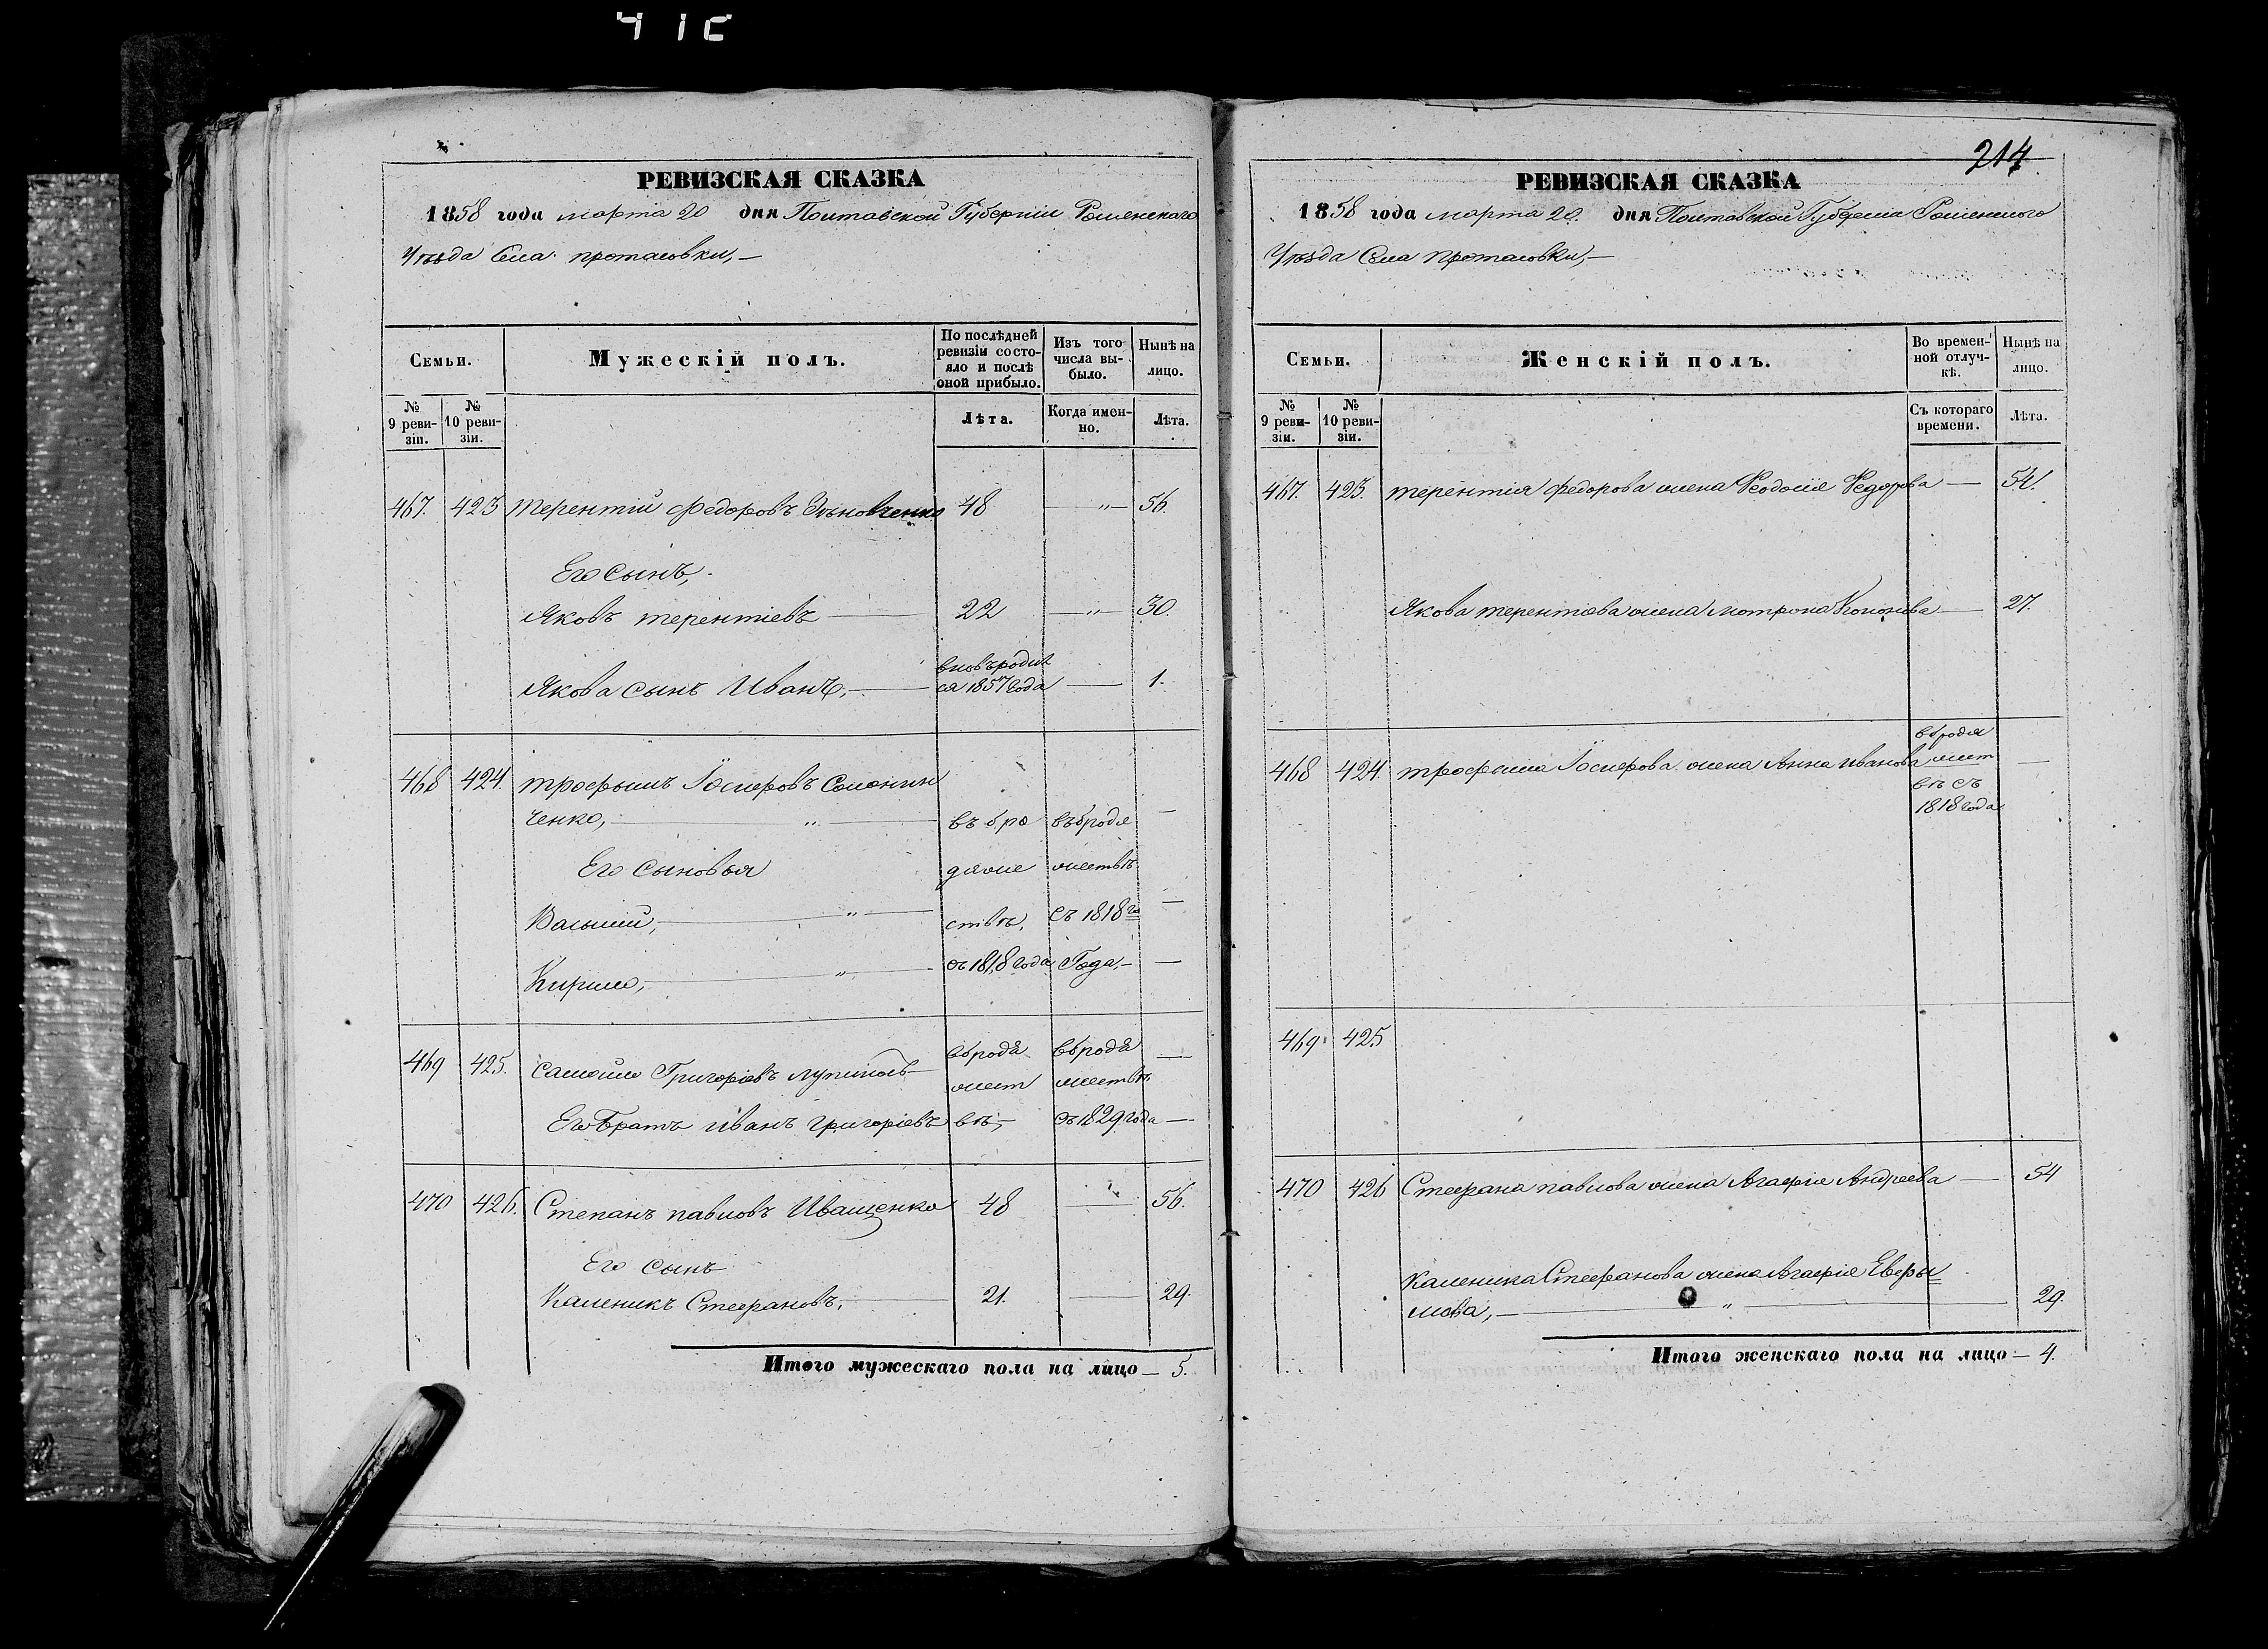 РЕВИЗСКАЯ СКАЗКА
1858 года марта 20 дня Полтавской Губерніи Роменскаго
Уѣзда Села протасовки,—
Семьи.
Мужескій полъ.
По послѣдней ревизіи состояло и послѣ оной прибыло.
Изъ того числа выбыло.
Нынѣ на лицо.
№ 9 ревизіи.
№ 10 ревизіи.
Лѣта.
Когда именно.
Лѣта.
467. 423 Терентій Федоровъ 48 — " — 56.
Его сынъ,
Яковъ терентіевъ — 22 — " — 30.
вновь родил
Якова сынъ Иванъ, — ся 1857 года — 1.
468 424. трофымъ Іосифовъ
ченко, — " — въ бро въ бродя —
Его сыновья дяже жествѣ
Василій, — " — ствѣ, съ 1818 го —
Кирило, — " — съ 1818 года Года, — —
469 425. Самойло Григоріевъ бродя бродя —
жест жествѣ
Его Братъ иванъ григоріевъ вѣ, — съ 1829 года —
470 426. Степанъ павловъ Иващенко 48 — 56.
Его сынъ
Каленикъ Стефановъ, — 21. — 29.
Итого мужескаго пола на лицо — 5.
214
РЕВИЗСКАЯ СКАЗКА
1858 года марта 20. дня Полтавской Губерніи Роменского
Уѣзда Села Протасовки, —
Семьи.
Женскій полъ.
Во временной отлучкѣ.
Нынѣ на лицо.
№ 9 ревизіи.
№ 10 ревизіи.
Съ котораго времени.
Лѣта.
467. 423. терентія федорова жена Феодосія Федорова — 54.
Якова терентіева жена мотрона Кононова — 27.
въ бродя
468 424. трофыма Іосифова жена Анна иванова жест —
вѣ съ
1818 года
469 425
470 426 Стефана павлова жена Агафія Андреева — 54
Каленика Стефанова жена Агафія Евфы
мова, — " — 29.
Итого женскаго пола на лицо — 4.